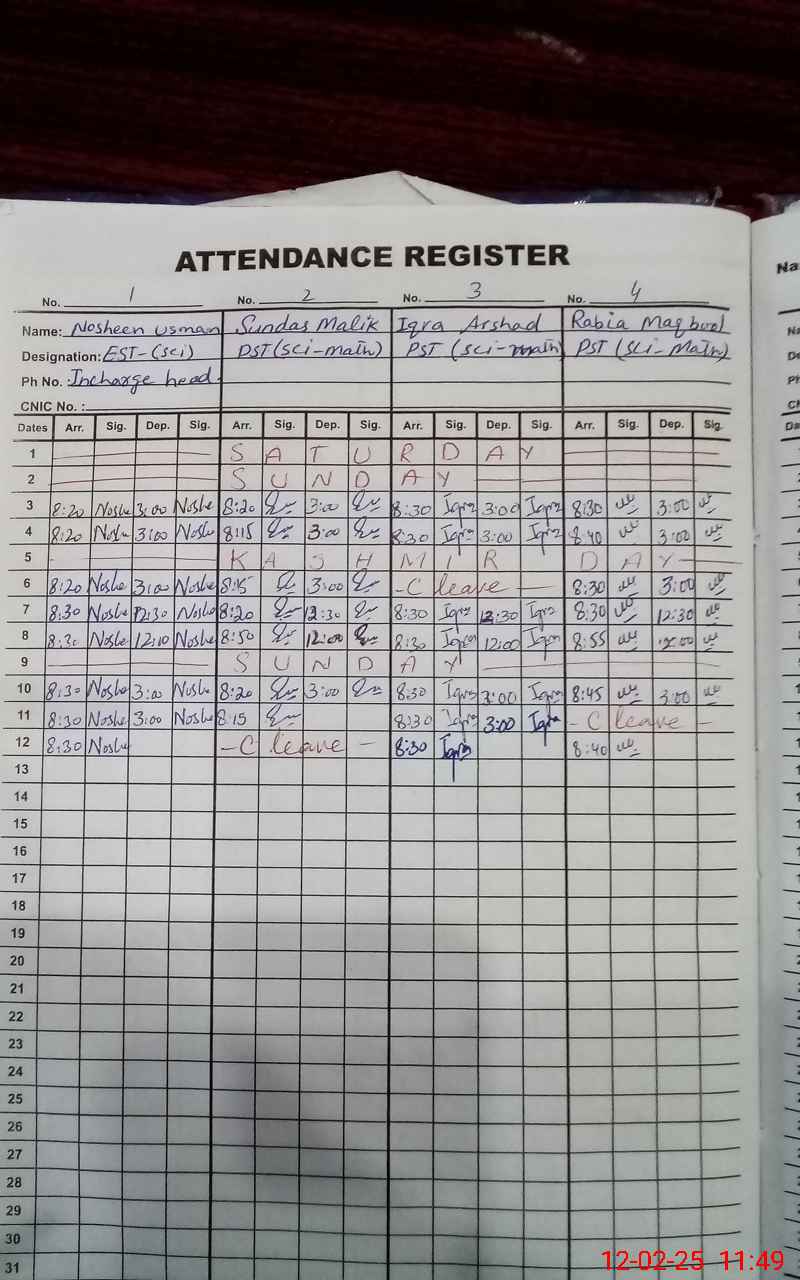 ATTENDANCE REGISTER
No. 1 No. 2 No. 3 No. 4
Name: Nosheen usman Sundas Malik Iqra Arshad Rabia Maqbool
Designation: EST-(sci) PST (sci-math) PST (sci-math) PST (sci-math)
Ph No. : Incharge head.
CNIC No. :
Dates Arr. Sig. Dep. Sig. Arr. Sig. Dep. Sig. Arr. Sig. Dep. Sig. Arr. Sig. Dep. Sig.
1 S A T U R D A Y
2 S U N D A Y
3 8:20 Noshe 3:00 Noshe 8:20 3:00 8:30 Iqra 3:00 Iqra 8:30 3:00
4 8:20 Noshe 3:00 Noshe 8:15 3:00 8:30 Iqra 3:00 Iqra 8:40 3:00
5 K A S H M I R D A Y
6 8:20 Noshe 3:00 Noshe 8:15 3:00 -C leave - 8:30 3:00
7 8:30 Noshe 12:30 Noshe 8:20 12:30 8:30 Iqra 12:30 Iqra 8:30 12:30
8 8:30 Noshe 12:10 Noshe 8:50 12:00 8:30 Iqra 12:00 Iqra 8:55 12:00
9 S U N D A Y
10 8:30 Noshe 3:00 Noshe 8:20 3:00 8:30 Iqra 3:00 Iqra 8:45 3:00
11 8:30 Noshe 3:00 Noshe 8:15 8:30 Iqra 3:00 Iqra - C leave -
12 8:30 Noshe - C leave - 8:30 Iqra 8:40
13
14
15
16
17
18
19
20
21
22
23
24
25
26
27
28
29
30
31
Na
12-02-25 11:49